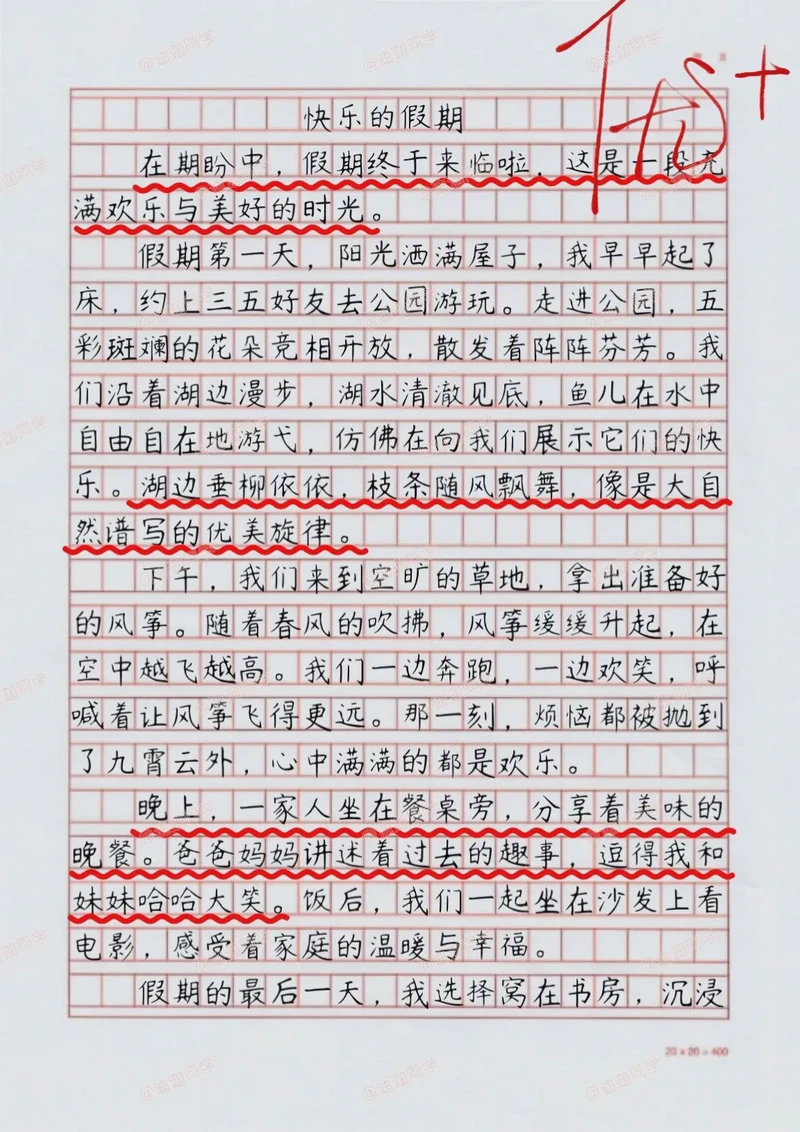 快乐的假期
在期盼中，假期终于来临啦，这是一段充
满欢乐与美好的时光。
假期第一天，阳光洒满屋子，我早早起了
床，约上三五好友去公园游玩。走进公园，五
彩斑斓的花朵竞相开放，散发着阵阵芬芳。我
们沿着湖边漫步，湖水清澈见底，鱼儿在水中
自由自在地游弋，仿佛在向我们展示它们的快
乐。湖边垂柳依依，枝条随风飘舞，像是大自
然谱写的优美旋律。
下午，我们来到空旷的草地，拿出准备好
的风筝。随着春风的吹拂，风筝缓缓升起，在
空中越飞越高。我们一边奔跑，一边欢笑，呼
喊着让风筝飞得更远。那一刻，烦恼都被抛到
了九霄云外，心中满满的都是欢乐。
晚上，一家人坐在餐桌旁，分享着美味的
晚餐。爸爸妈妈讲述着过去的趣事，逗得我和
妹妹哈哈大笑。饭后，我们一起坐在沙发上看
电影，感受着家庭的温暖与幸福。
假期的最后一天，我选择窝在书房，沉浸
20×20=400